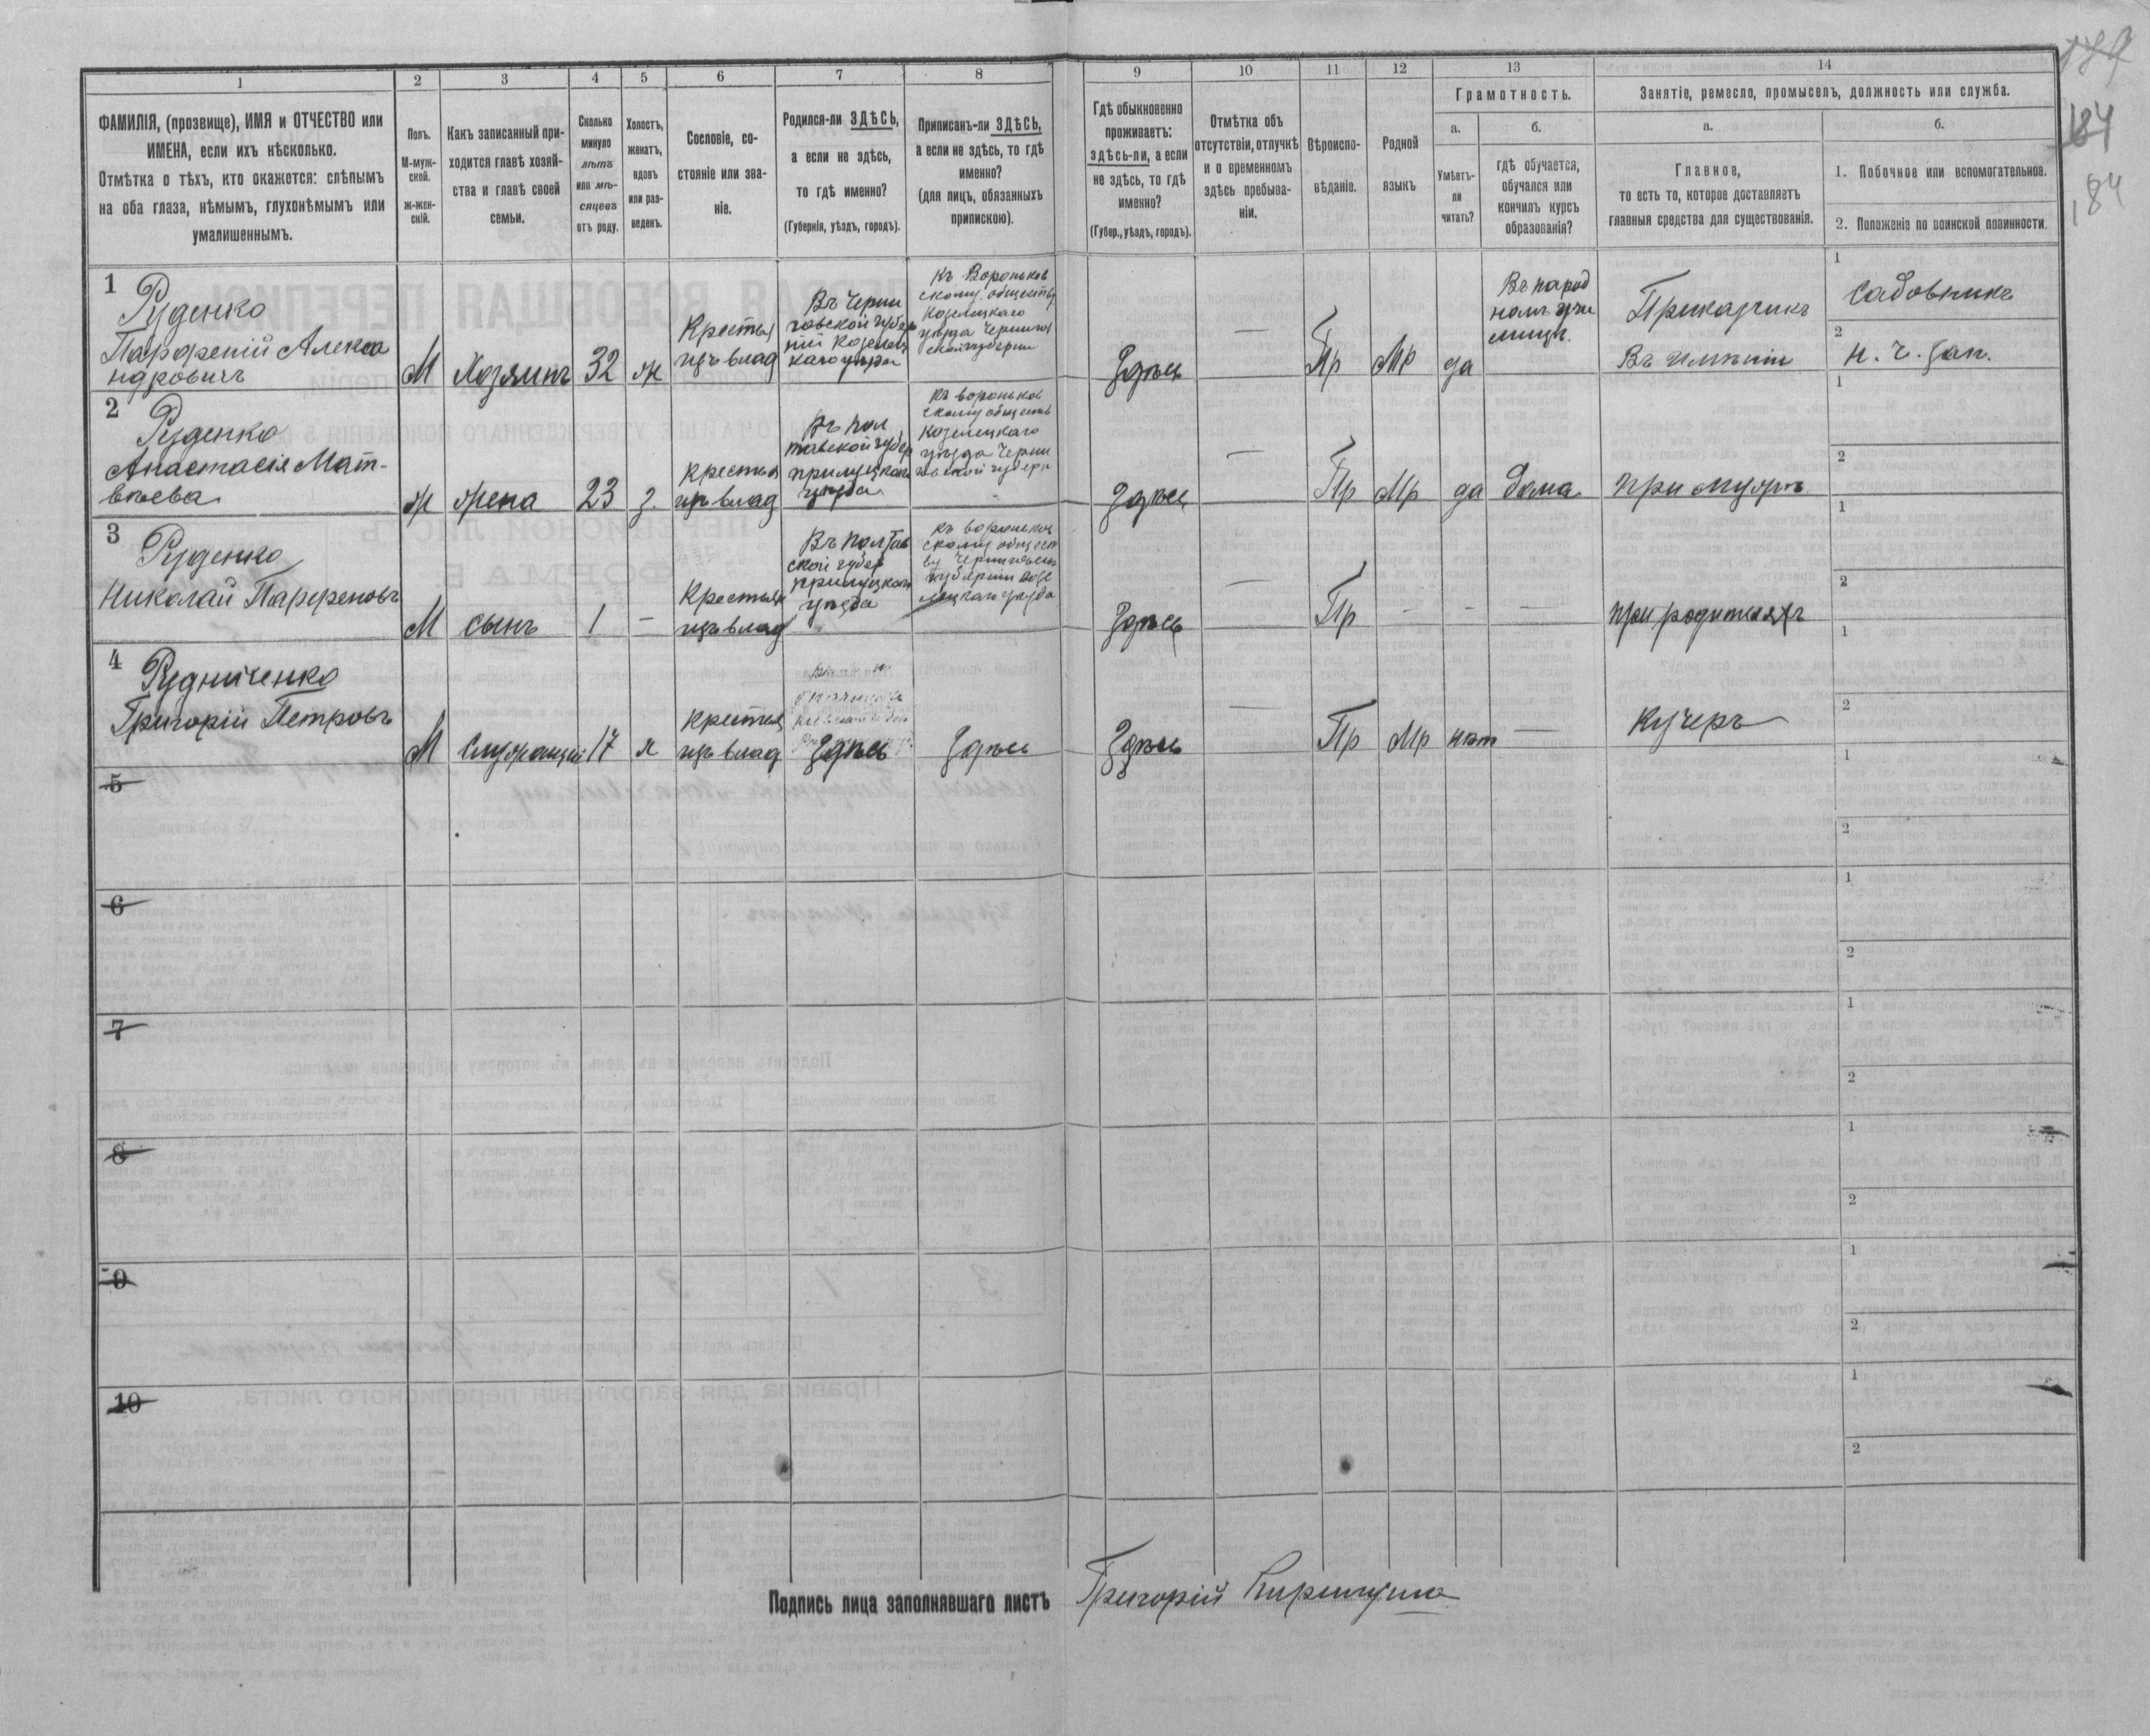 184
184
184
1 2 3 4 5 6 7 8 9 10 11 12 13 14
ФАМИЛІЯ, (прозвище), ИМЯ и ОТЧЕСТВО или
ИМЕНА, если ихъ нѣсколько.
Отмѣтка о тѣхъ, кто окажется: слѣпымъ
на оба глаза, нѣмымъ, глухонѣмымъ или
умалишеннымъ.
Полъ.
М-муж-
ской.
ж-жен-
скій.
Какъ записанный при-
ходится главѣ хозяй-
ства и главѣ своей
семьи.
Сколько
минуло
лѣтъ
или мѣ-
сяцевъ
отъ роду.
Холостъ,
женатъ,
вдовъ
или раз-
веденъ.
Сословіе, со-
стояніе или зва-
ніе.
Родился-ли ЗДѢСЬ,
а если не здѣсь,
то гдѣ именно?
(Губернія, уѣздъ, городъ).
Приписанъ-ли ЗДѢСЬ,
а если не здѣсь, то гдѣ
именно?
(для лицъ, обязанныхъ
припискою).
Гдѣ обыкновенно
проживаетъ:
здѣсь-ли, а если
не здѣсь, то гдѣ
именно?
(Губер., уѣздъ, городъ).
Отмѣтка объ
отсутствіи, отлучкѣ
и о временномъ
здѣсь пребыва-
ніи.
Вѣроиспо-
вѣданіе.
Родной
языкъ
Грамотность.
а.
Умѣетъ-
ли
читать?
б.
гдѣ обучается,
обучался или
кончилъ курсъ
образованія?
Занятіе, ремесло, промыселъ, должность или служба.
а.
Главное,
то есть то, которое доставляетъ
главныя средства для существованія.
б.
1. Побочное или вспомогательное.
2. Положеніе по воинской повинности.
1
Руденко
Парфеній Алекса
ндровичъ
М
Хозяинъ
32
ж
Крестья
изъ влад
Въ Черни
говской губер
ніи Козелец
каго уѣзда
Къ Вороньков
скому обществу
Козелецкаго
уѣзда Чернигов
ской губерніи
Здѣсь
—
Пр
Мр
да
Въ народ
номъ учи
лищѣ.
Прикащикъ
Въ имѣніи
1
Садовникъ
2
н. ч. зап.
2
Руденко
Анастасія Мат-
вѣева
ж
жена
23
з.
Крестья
изъ влад
Въ Пол
тавской губер
прилуцкаго
уѣзда
Къ вороньков
скому обществ
Козелецкаго
уѣзда Черни
говской губерн
Здѣсь
—
Пр
Мр
да
дома
При мужѣ
1
2
3
Руденко
Николай Парфеновъ
М
сынъ
1
—
Крестья
изъ влад
Въ Полтав
ской губер
прилуцкаго
уѣзда
Къ вороньков
скому общест
ву Черниговск
губерніи Козе
лецкаго уѣзда
Здѣсь
—
Пр
—
—
—
При родителяхъ
1
2
4
Рудниченко
Григорій Петровъ
М
Служащій
17
х
Крестья
изъ влад
Здѣсь
Здѣсь
Здѣсь
—
Пр
Мр
нѣт
—
Кучеръ
1
2
5
1
2
6
1
2
7
1
2
8
1
2
9
1
2
10
1
2
Подпись лица заполнявшаго листъ Григорій